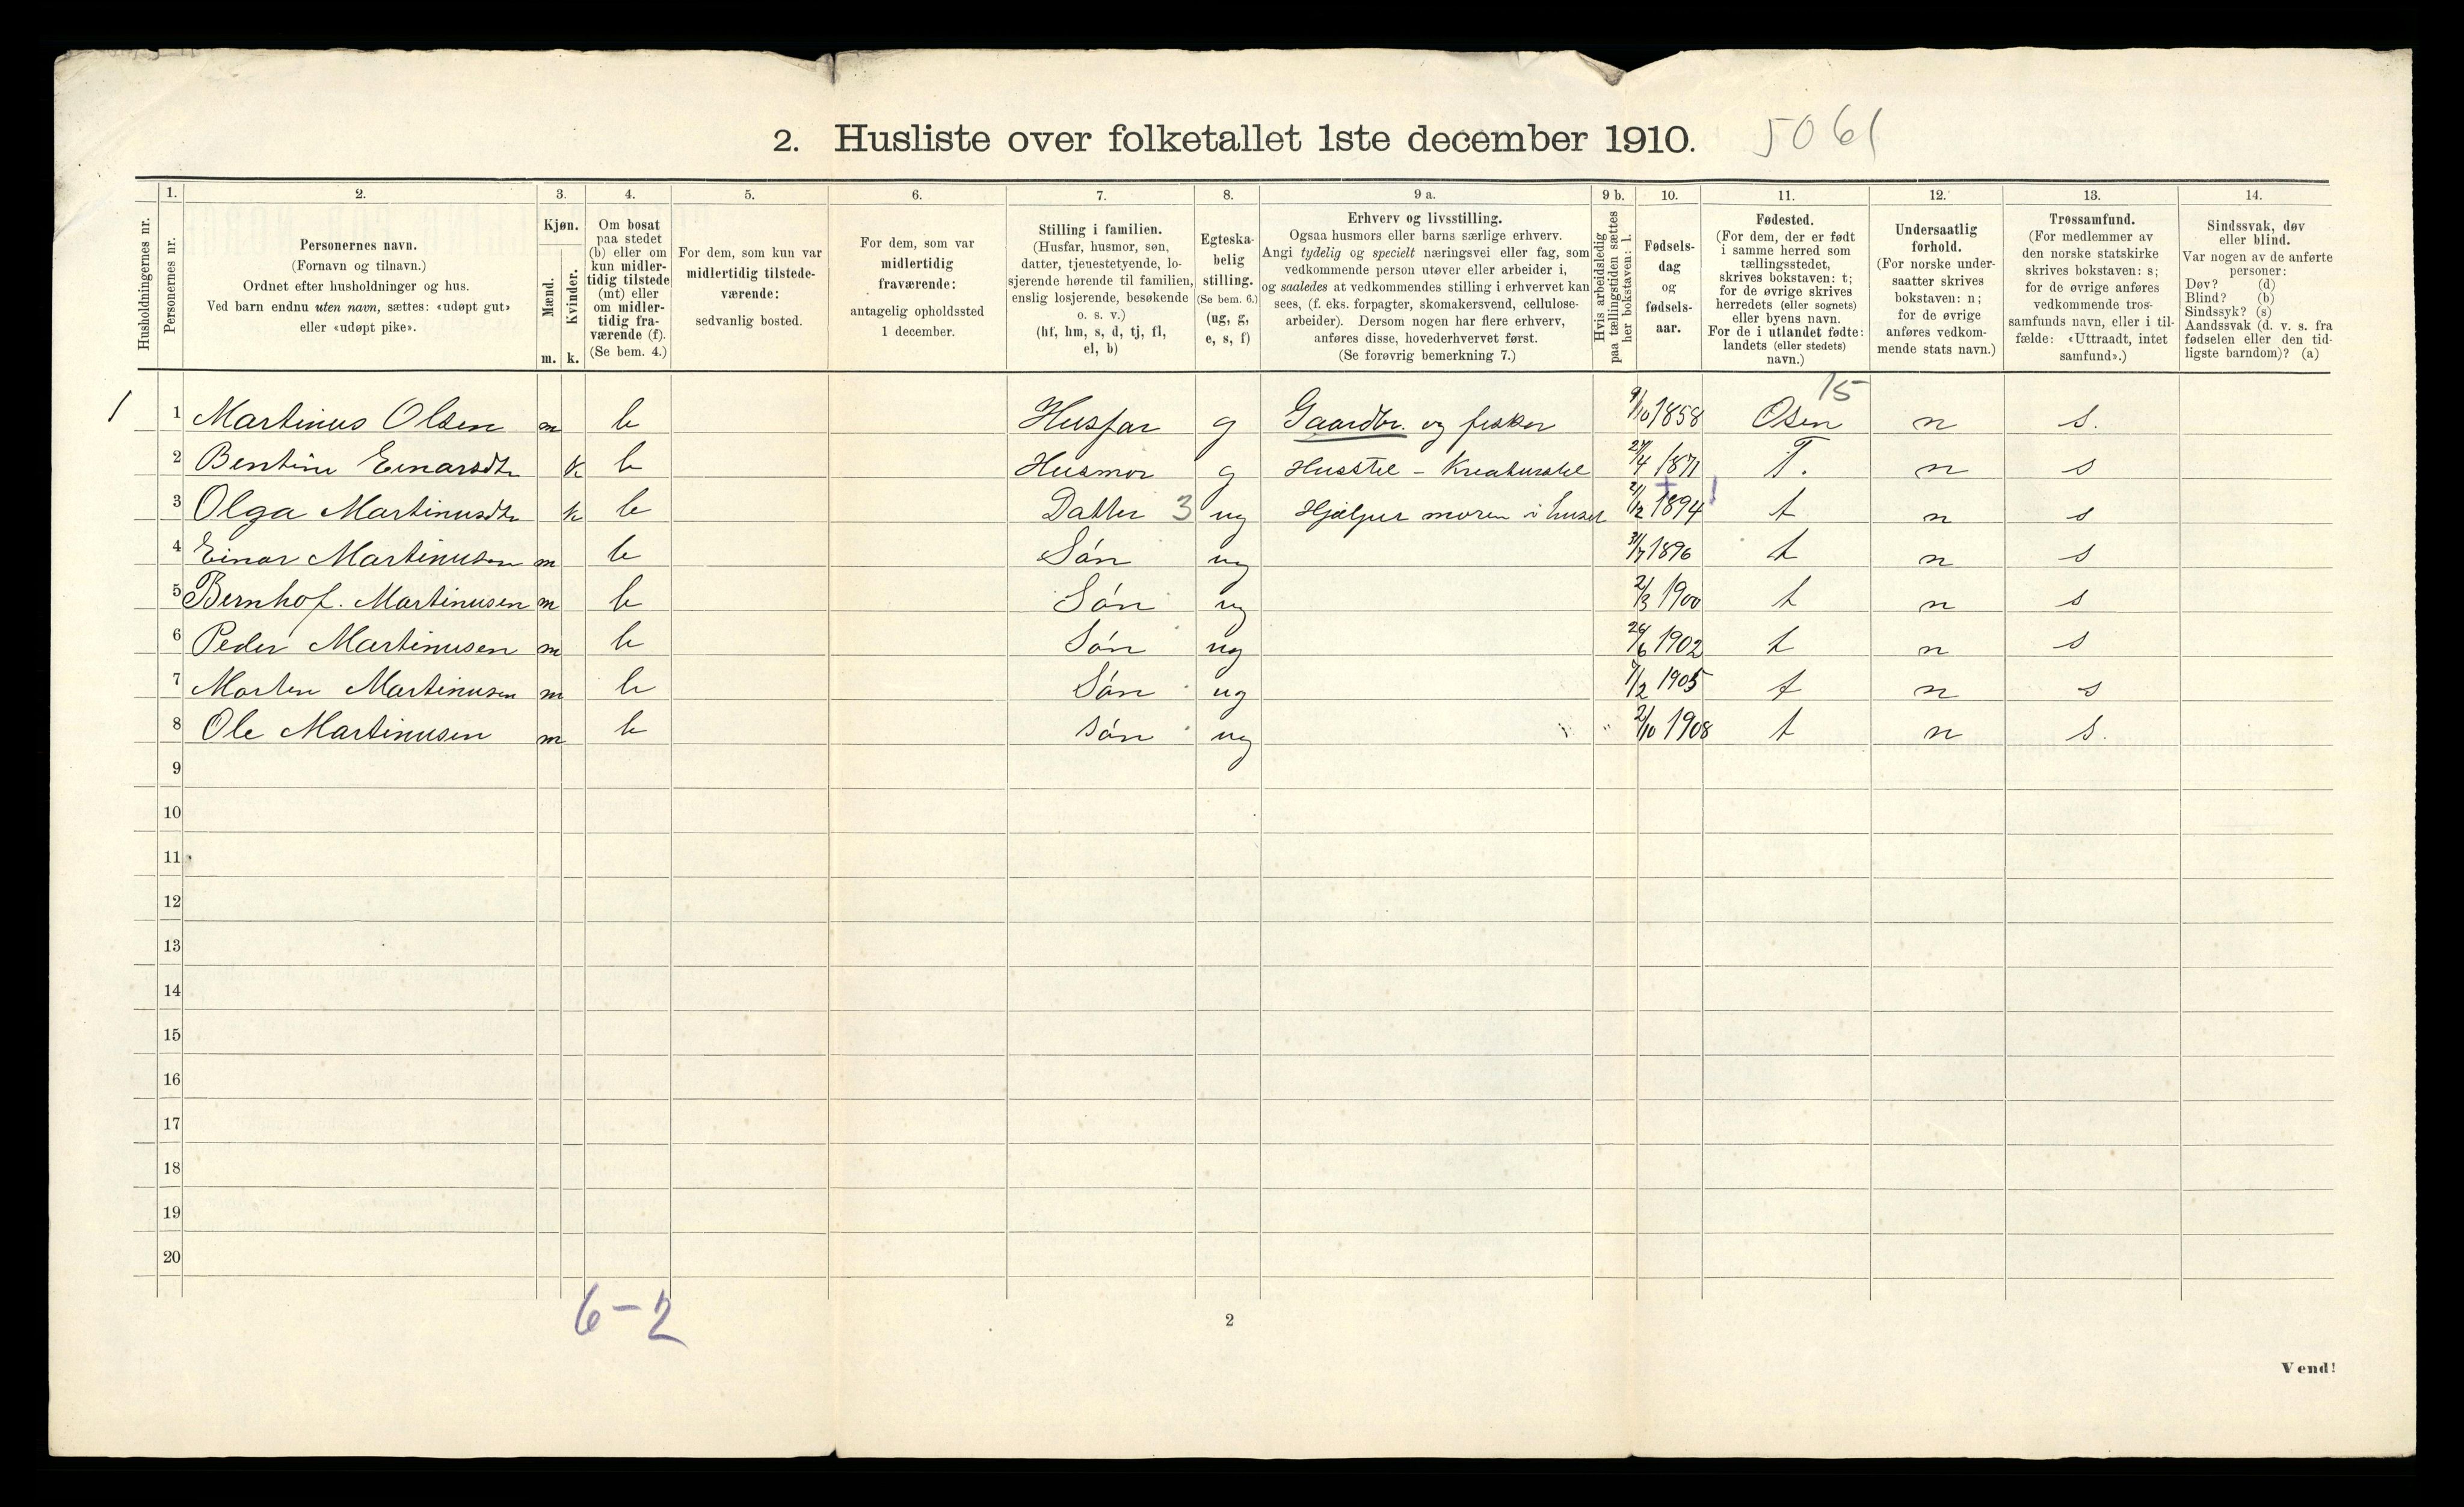 2. Husliste over folketallet 1ste december 1910. 5061
Husholdningernes nr.
1. Personernes nr.
2. Personernes navn. (Fornavn og tilnavn.) Ordnet efter husholdninger og hus. Ved barn endnu uten navn, sættes: «udøpt gut» eller «udøpt pike».
3. Kjøn. Mænd. m. Kvinder. k.
4. Om bosat paa stedet (b) eller om kun midlertidig tilstede (mt) eller om midlertidig fraværende (f). (Se bem. 4.)
5. For dem, som kun var midlertidig tilstedeværende: sedvanlig bosted.
6. For dem, som var midlertidig fraværende: antagelig opholdssted 1 december.
7. Stilling i familien. (Husfar, husmor, søn, datter, tjenestetyende, losjerende hørende til familien, enslig losjerende, besøkende o. s. v.) (hf, hm, s, d, tj, fl, el, b)
8. Egteskabelig stilling. (Se bem. 6.) (ug, g, e, s, f)
9 a. Erhverv og livsstilling. Ogsaa husmors eller barns særlige erhverv. Angi tydelig og specielt næringsvei eller fag, som vedkommende person utøver eller arbeider i, og saaledes at vedkommendes stilling i erhvervet kan sees, (f. eks. forpagter, skomakersvend, cellulosearbeider). Dersom nogen har flere erhverv, anføres disse, hovederhvervet først. (Se forøvrig bemerkning 7.)
9 b. Hvis arbeidsledig paa tællingstiden sættes her bokstaven: l.
10. Fødselsdag og fødselsaar.
11. Fødested. (For dem, der er født i samme herred som tællingsstedet, skrives bokstaven: t; for de øvrige skrives herredets (eller sognets) eller byens navn. For de i utlandet fødte: landets (eller stedets) navn.)
12. Undersaatlig forhold. (For norske undersaatter skrives bokstaven: n; for de øvrige anføres vedkommende stats navn.)
13. Trossamfund. (For medlemmer av den norske statskirke skrives bokstaven: s; for de øvrige anføres vedkommende trossamfunds navn, eller i tilfælde: «Uttraadt, intet samfund».)
14. Sindssvak, døv eller blind. Var nogen av de anførte personer: Døv? (d) Blind? (b) Sindssyk? (s) Aandssvak (d. v. s. fra fødselen eller den tidligste barndom)? (a)
15
1 1 Martinus Olsen m b Husfar g Gaardbr. og fisker 9/10 1858 Osen n s.
2 Bentine Einarsdtr k b Husmor g Husstel - Kreaturstel 27/4 1871 T. n s
3 Olga Martinusdtr k b Datter 3 ug Hjælper moren i huset 2/12 1894 t n s
4 Einar Martinusen m b Søn ug 31/7 1896 t n s
5 Bernhof. Martinusen m b Søn ug 2/3 1900 t n s
6 Peder Martinusen m b Søn ug 26/6 1902 t n s
7 Morten Martinusen m b Søn ug 7/2 1905 t n s
8 Ole Martinusen m b søn ug 2/10 1908 t n s.
9
10
11
12
13
14
15
16
17
18
19
20
6-2
2
Vend!